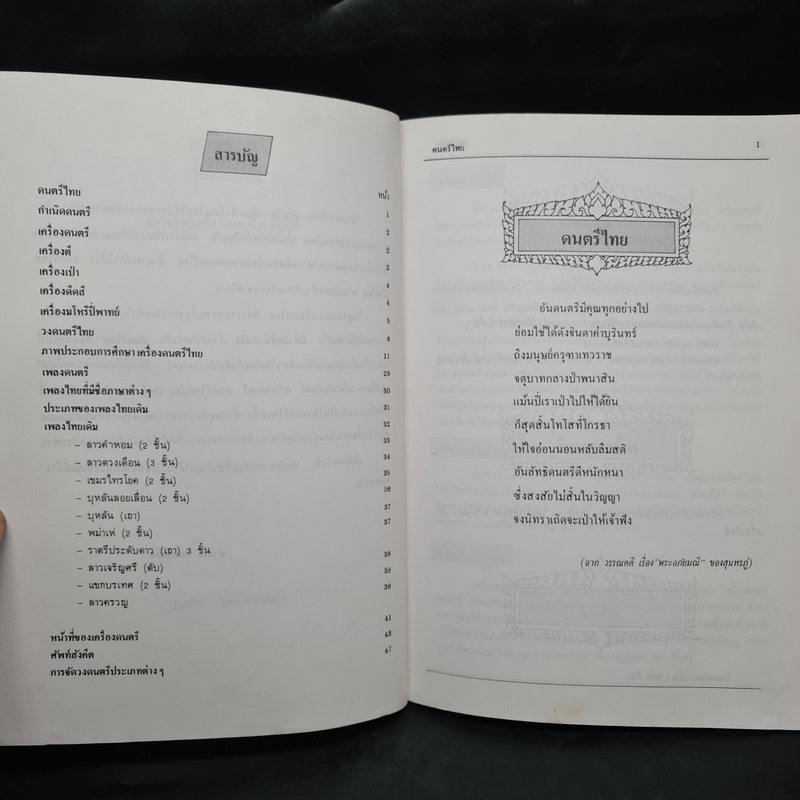 สารบัญ
ดนตรีไทย หน้า
กำเนิดดนตรี 1
เครื่องดนตรี 2
เครื่องตี 2
เครื่องเป่า 3
เครื่องดีดสี 4
เครื่องมโหรีปี่พาทย์ 4
วงดนตรีไทย 5
ภาพประกอบการศึกษา เครื่องดนตรีไทย 6
เพลงดนตรี 11
เพลงไทยที่มีชื่อภาษาต่าง ๆ 29
ประเภทของเพลงไทยเดิม 30
เพลงไทยเดิม 31
32
- ลาวคำหอม (2 ชั้น) 33
- ลาวดวงเดือน (3 ชั้น) 34
- เขมรไทรโยค (2 ชั้น) 35
- บุหลันลอยเลื่อน (2 ชั้น) 36
- บุหลัน (เถา) 37
- พม่าเห่ (2 ชั้น) 37
- ราตรีประดับดาว (เถา) 3 ชั้น 38
- ลาวเจริญศรี (ตับ) 38
- แขกบรเทศ (2 ชั้น) 39
- ลาวครวญ
หน้าที่ของเครื่องดนตรี 41
ศัพท์สังคีต 43
การจัดวงดนตรีประเภทต่าง ๆ 47
ดนตรีไทย 1
ดนตรีไทย
อันดนตรีมีคุณทุกอย่างไป
ย่อมใช้ได้ดังจินดาค่าบุรินทร์
ถึงมนุษย์ครุฑาเทวราช
จตุบาทกลางป่าพนาสิน
แม้นปี่เราเป่าไปให้ได้ยิน
ก็สุดสิ้นโทโสที่โกรธา
ให้ใจอ่อนนอนหลับลืมสติ
อันลัทธิดนตรีดีหนักหนา
ซึ่งสงสัยไม่สิ้นในวิญญา
จงนิทราเถิดจะเป่าให้เจ้าฟัง
(จาก วรรณคดี เรื่อง"พระอภัยมณี" ของสุนทรภู่)